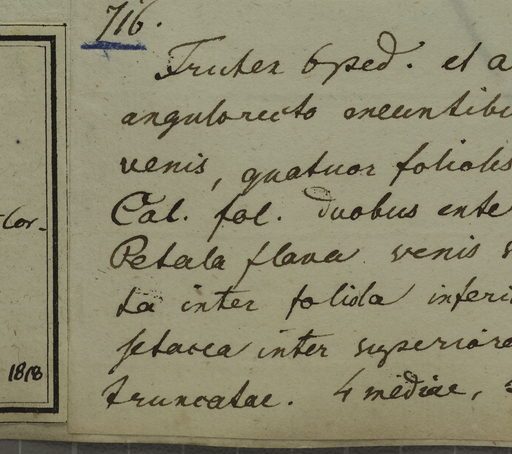 716.
Frutex 6 ped. et a
angulo recto exeuntibu
venis, quatuor foliolis
Cal. fol. duobus exte
Petala flava venis
ta inter folida inferi
setacea inter superiore
truncatae. 4 mediae,
-Cor-
1818